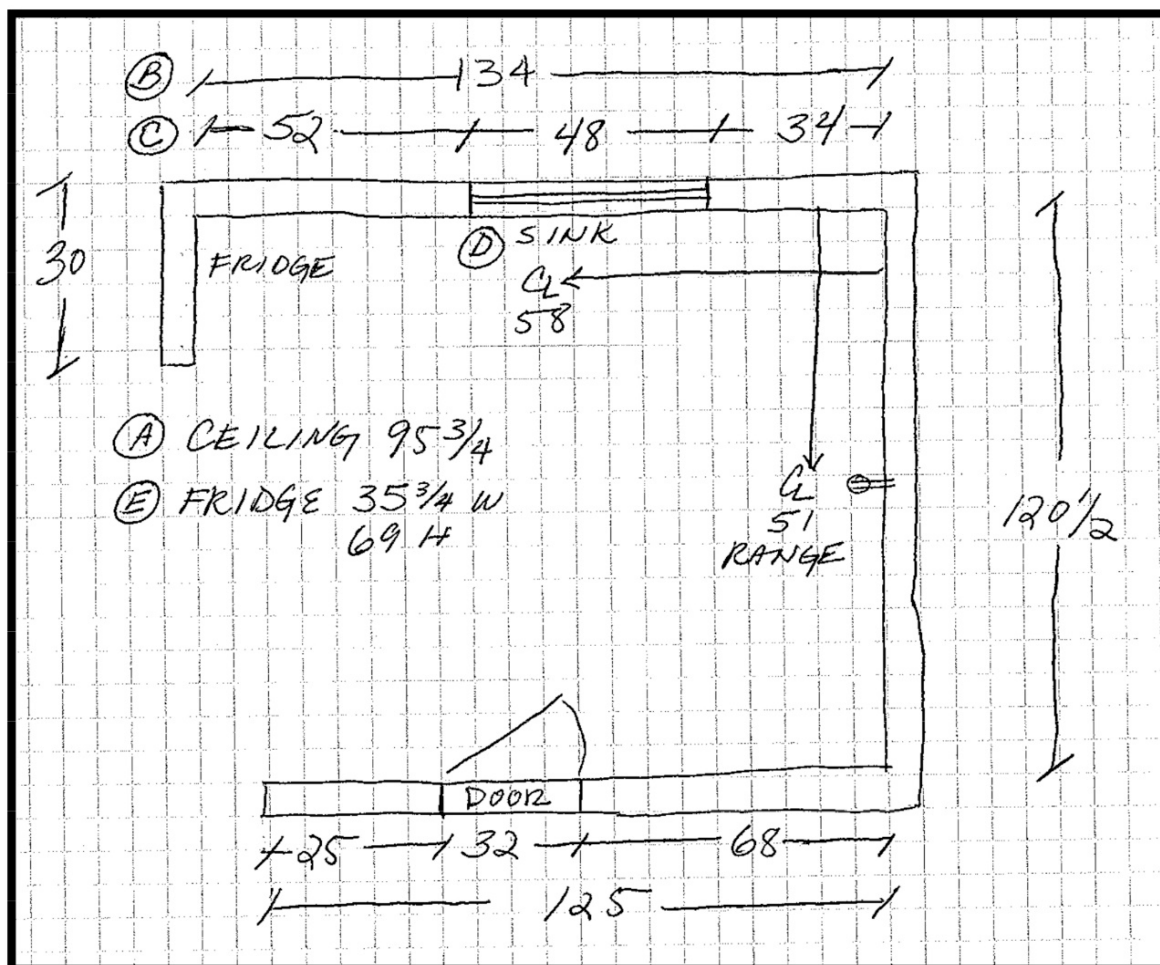 B 134
C 52 48 34
30
FRIDGE
D SINK
CL
58
A CEILING 95 3/4
E FRIDGE 35 3/4 W
69 H
CL
51
RANGE
120 1/2
DOOR
25 32 68
125